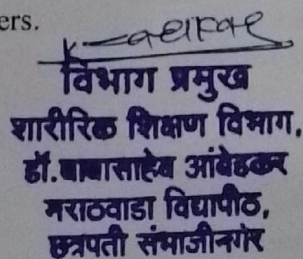 ers.
विभाग प्रमुख
शारीरिक शिक्षण विभाग,
डॉ.बाबासाहेब आंबेडकर
मराठवाडा विद्यापीठ,
छत्रपती संभाजीनगर